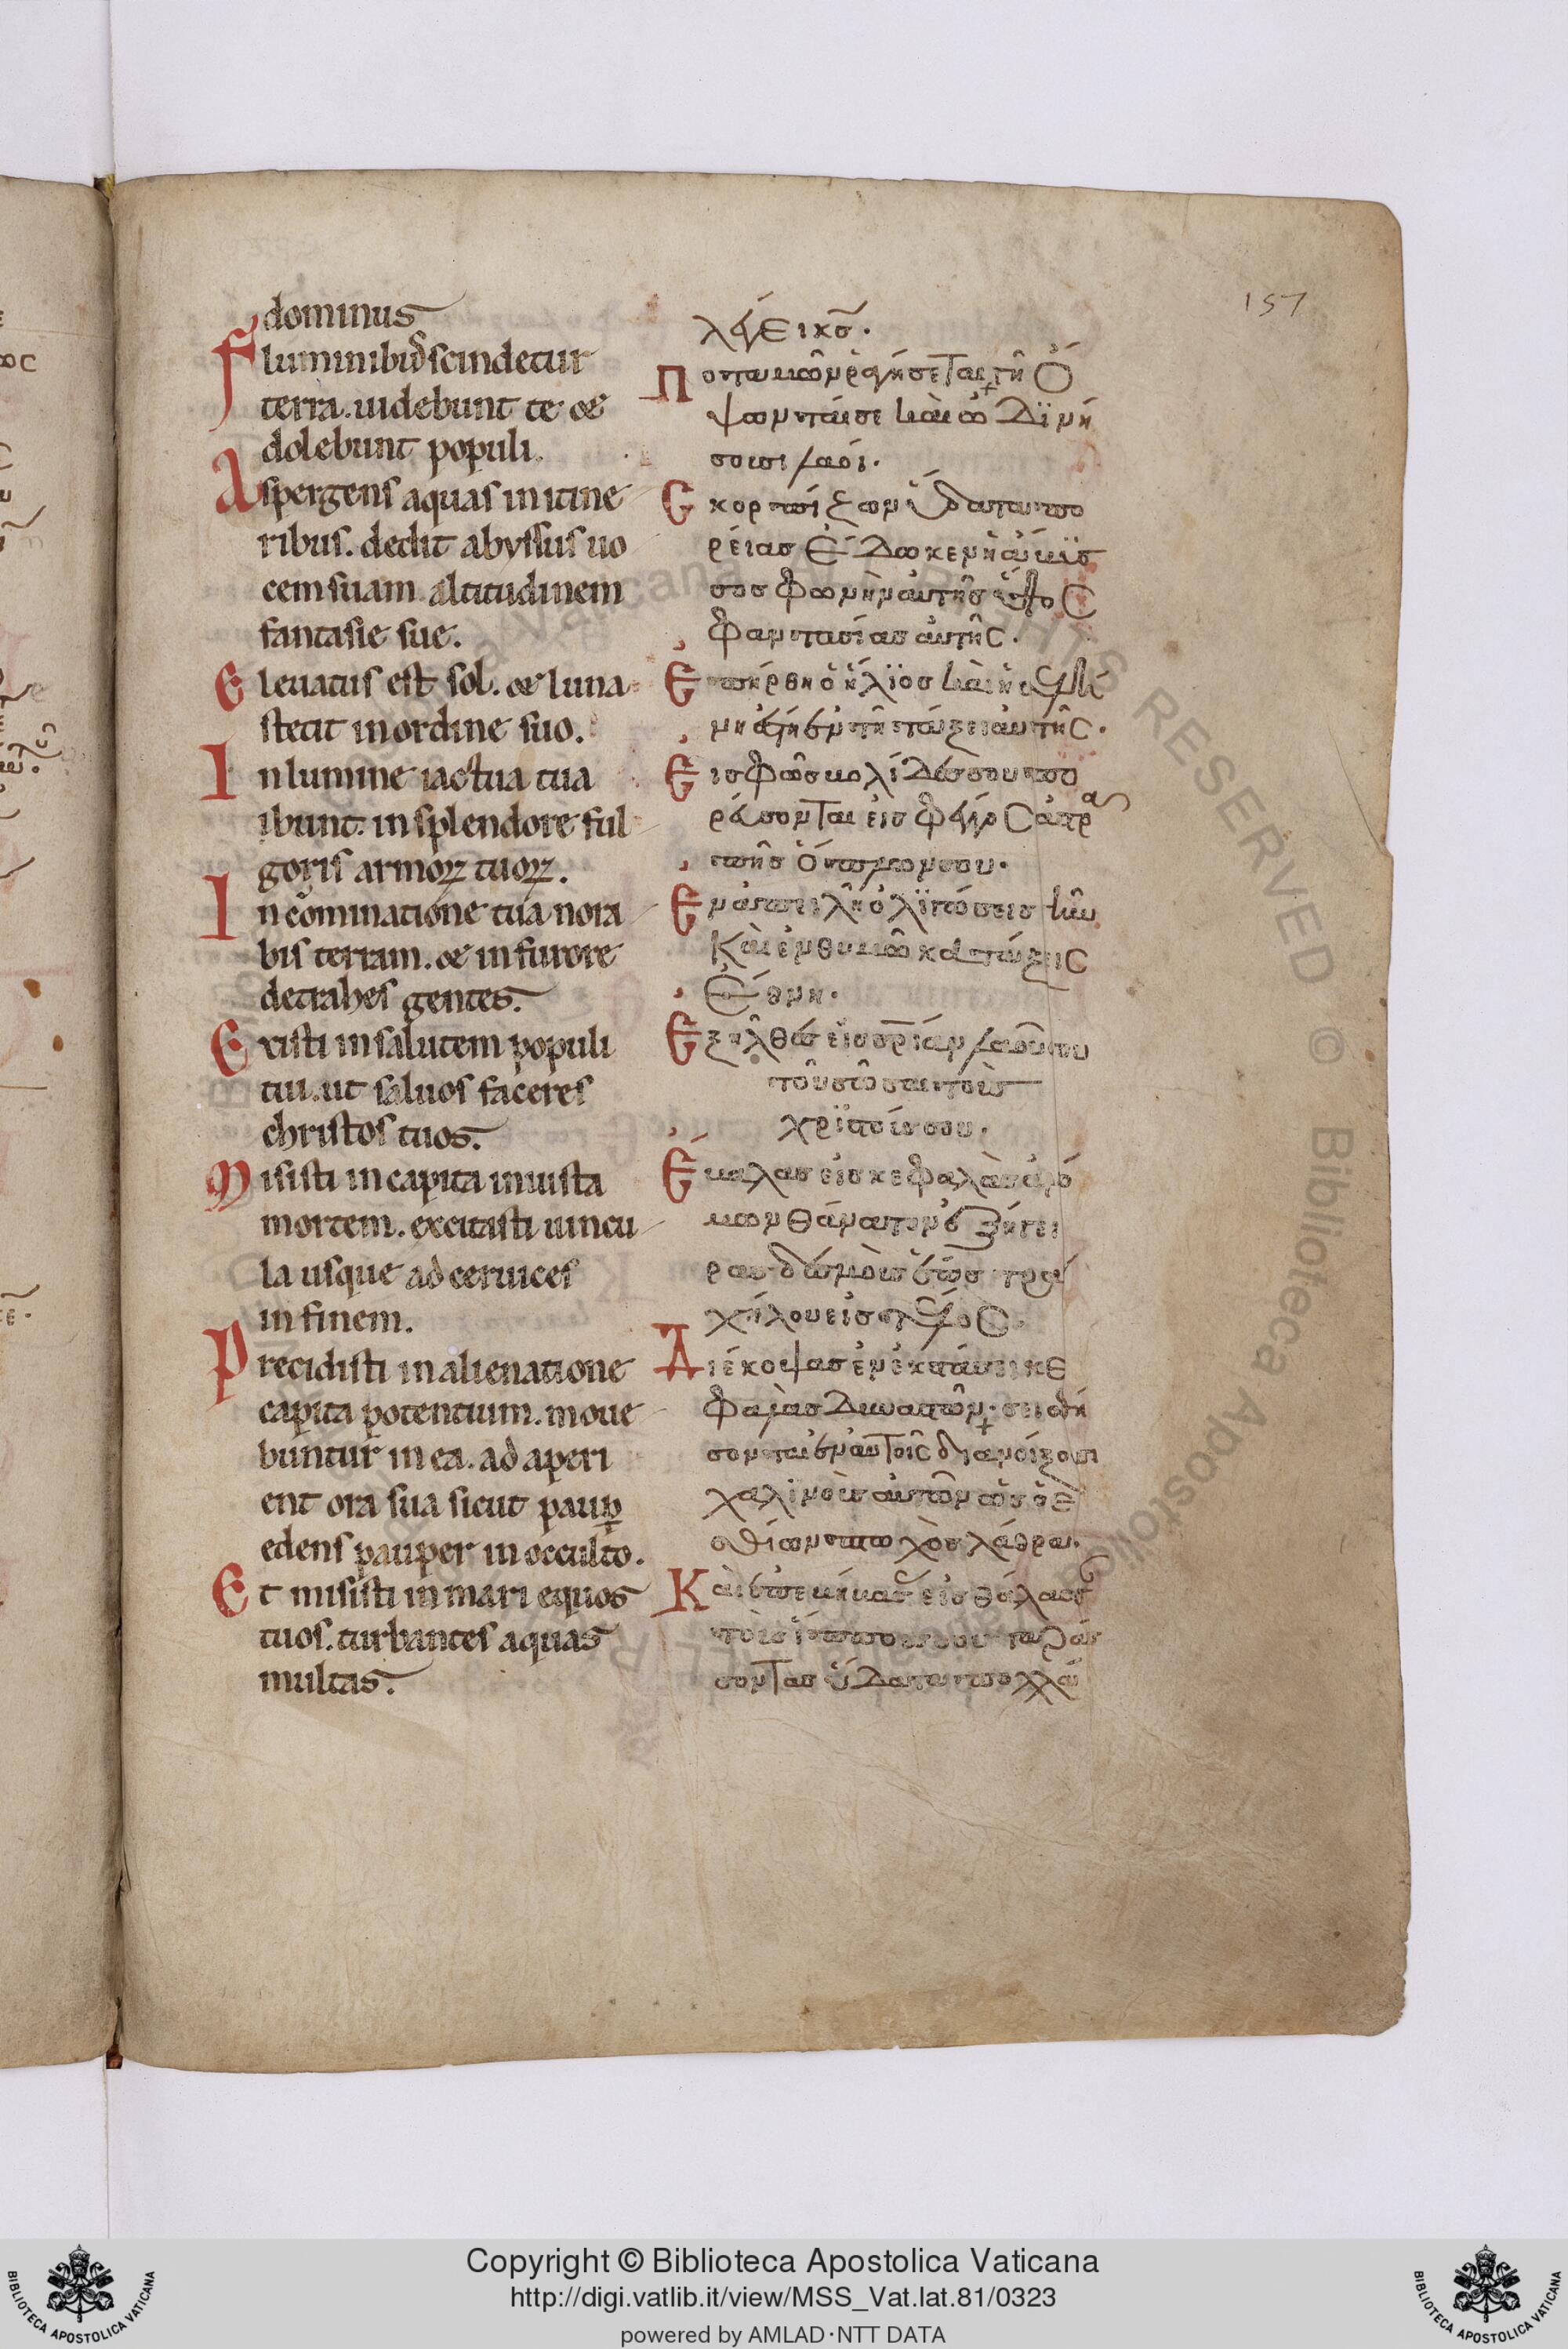 157
dominus
Fluminibus scindetur
terra. uidebunt te et
dolebunt populi.
Aspergens aquas in itine
ribus. dedit abyssus uo
cem suam altitudinem
fantasie sue.
Eleuatus est sol. et luna
stetit in ordine suo.
In lumine iactua tua
ibunt. in splendore ful
goris armorum tuorum.
In cominatione tua nora
bis terram. et in furore
detrahes gentes.
Existi in salutem populi
tui. ut saluos faceres
christos tuos.
Misisti in capita iniusta
mortem. excitasti uincu
la usque ad ceruices
in finem.
Precidisti in alienatione
capita potentium. moue
buntur in ea. ad aperi
ent ora sua sicut paup
edens pauper in occulto.
Et misisti in mari equos
tuos. turbantes aquas
multas.
λέγει κσ.
Ποταμῶν ραγήσεται γῆ ὄ
ψωνταί σε καὶ ὠδινή
σουσι λαοί.
Σκορπίζων ὕδατα πο
ρείας ἔδωκεν ἡ ἄβυσ
σος φωνὴν αὐτῆς ὕψος
φαντασίας αὐτῆς.
Ἐπήρθη ὁ ἥλιος καὶ ἡ σελή
νη ἔστη ἐν τῇ τάξει αὐτῆς.
Εἰς φῶς βολίδες σου πο
ρεύσονται εἰς φέγγος ἀστρα
πῆς ὅπλων σου.
Ἐν ἀπειλῇ ὀλιγώσεις γῆν
καὶ ἐν θυμῷ κατάξεις
ἔθνη.
Ἐξῆλθες εἰς σριαν λαοῦ σου
τοῦ σῶσαι τοὺς
χριστούς σου.
Ἔβαλας εἰς κεφαλὰς ἀνό
μων θάνατον ἐξήγει
ρας δεσμοὺς ἕως τρα
χήλου εἰς τέλος.
Διέκοψας ἐν ἐκστάσει κε
φαλὰς δυναστῶν. σεισθή
σονται ἐν αὐτοῖς διανοίξουσι
χαλινοὺς αὐτῶν ὡς ὁ ἐ
σθίων πτωχὸς λάθρα.
Καὶ ἐπεβίβασας εἰς θάλασσ
τοὺς ἵππους σου ταράσ
σοντας ὕδατα πολλά
Copyright © Biblioteca Apostolica Vaticana
http://digi.vatlib.it/view/MSS_Vat.lat.81/0323
powered by AMLAD·NTT DATA
BIBLIOTECA APOSTOLICA VATICANA
BIBLIOTECA APOSTOLICA VATICANA